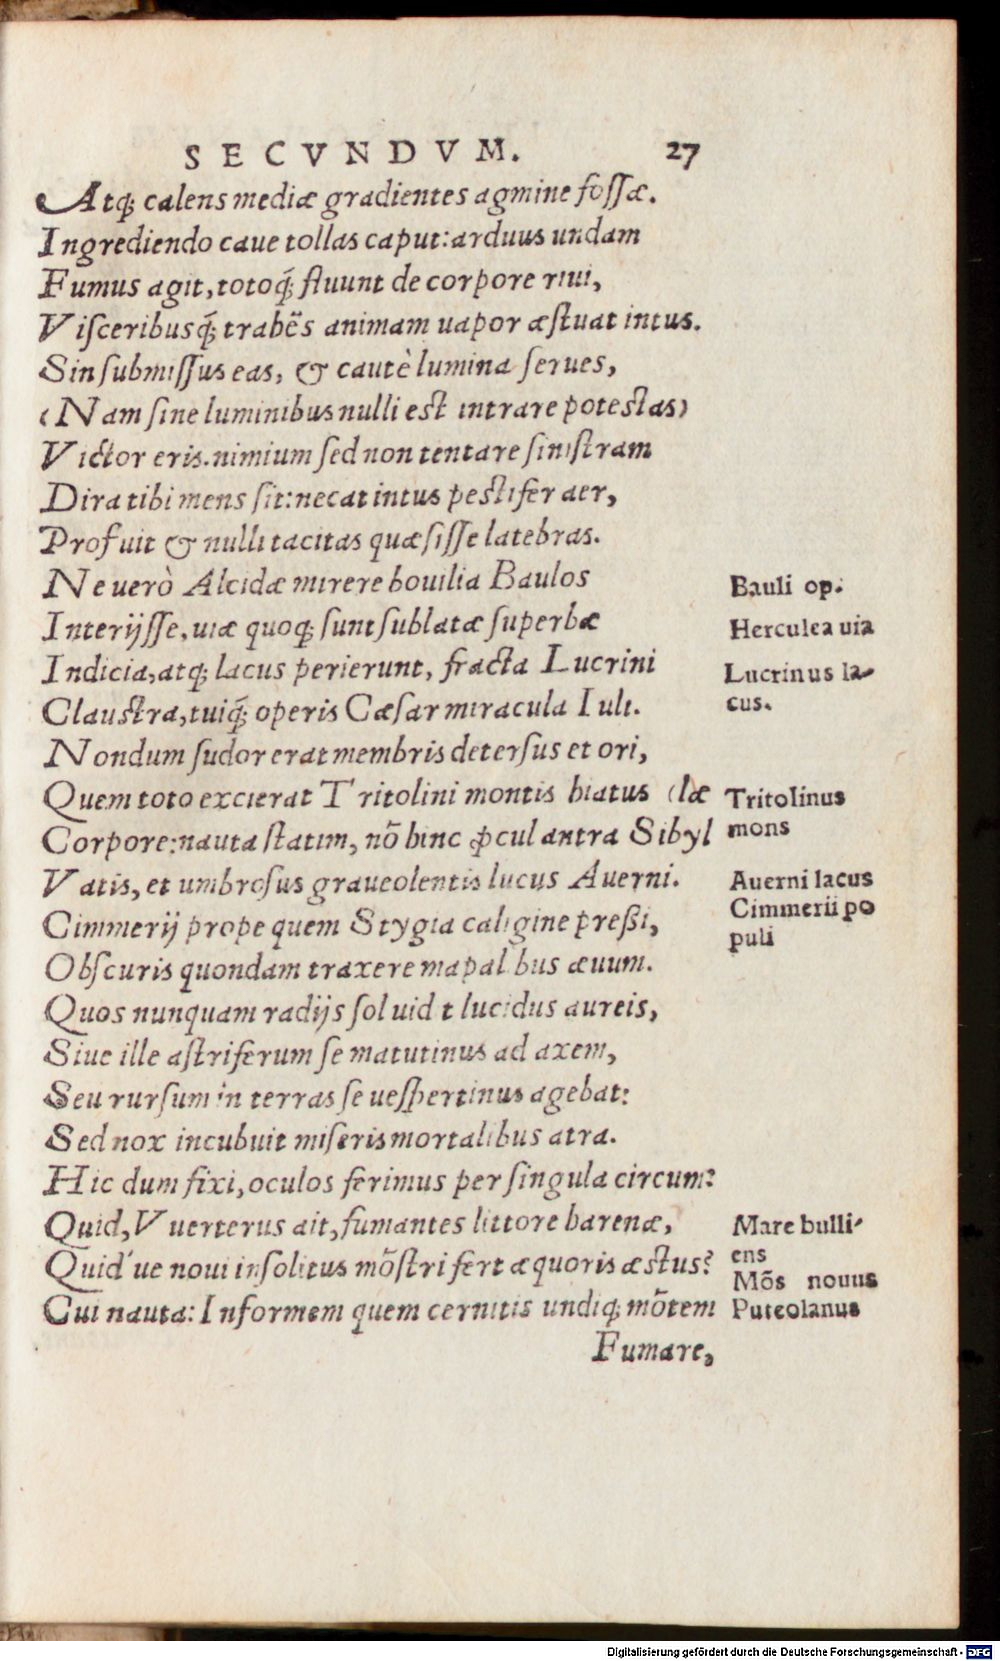 SECVNDVM. 27
Atq; calens mediæ gradientes agmine fossæ.
Ingrediendo caue tollas caput: arduus undam
Fumus agit, totoq́; fluunt de corpore riui,
Visceribusq́; trahẽs animam uapor æstuat intus.
Sin submissus eas, & cautè lumina serues,
(Nam sine luminibus nulli est intrare potestas)
Victor eris. nimium sed non tentare sinistram
Dira tibi mens sit: necat intus pestifer aer,
Profuit & nulli tacitas quæsisse latebras.
Ne uerò Alcidæ mirere bouilia Baulos
Bauli op.
Interijsse, uiæ quoq; sunt sublatæ superbæ
Herculea uia
Indicia, atq; lacus perierunt, fracta Lucrini
Lucrinus la-
Claustra, tuiq́; operis Cæsar miracula Iuli.
cus.
Nondum sudor erat membris detersus et ori,
Quem toto excierat Tritolini montis hiatus (læ
Tritolinus
Corpore: nauta statim, nõ hinc ꝓcul antra Sibyl
mons
Vatis, et umbrosus graueolentis lucus Auerni.
Auerni lacus
Cimmerij prope quem Stygia caligine preßi,
Cimmerii po
Obscuris quondam traxere mapalibus æuum.
puli
Quos nunquam radijs sol uidit lucidus aureis,
Siue ille astriferum se matutinus ad axem,
Seu rursum in terras se uespertinus agebat:
Sed nox incubuit miseris mortalibus atra.
Hic dum fixi, oculos ferimus per singula circum:
Quid, Vuerterus ait, fumantes littore harenæ,
Mare bulli-
Quid´ue noui insolitus mõstri fert æquoris æstus?
ens
Mõs nouus
Cui nauta: Informem quem cernitis undiq; mõtem
Puteolanus
Fumare,
Digitalisierung gefördert durch die Deutsche Forschungsgemeinschaft - DFG